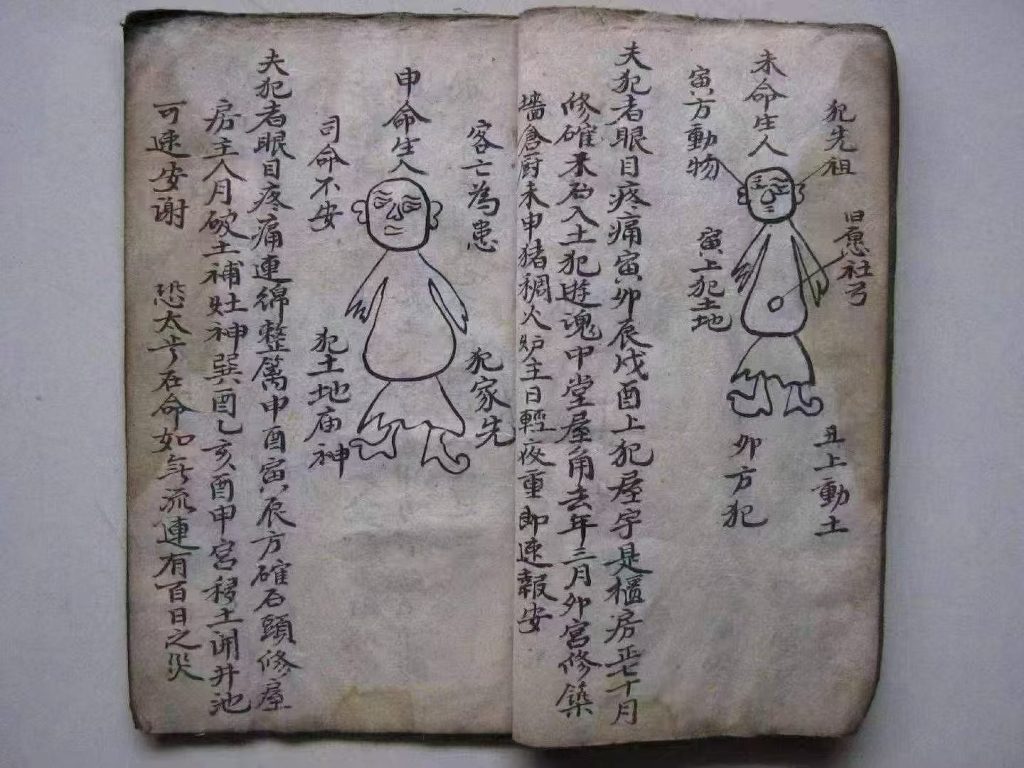 犯先祖
未命生人
寅方動物
旧愿社弓
寅上犯土地
丑上動土
卯方犯
夫犯者眼目疼痛寅卯辰戌酉上犯屋宇是櫃房正七十月
修碓來石入土犯遊魂中堂屋角去年三月卯宮修築
墻倉厨未申猪稠火炉主日輕夜重即速報安
客亡為患
申命生人
司命不安
犯家先
犯土地庙神
夫犯者眼目疼痛連綿整篱申酉寅辰方碓石頭修屋
房主八月破土補灶神巽酉乙亥酉申宮移土開井池
可速安谢 恐太岁石命如年流連有百日之災